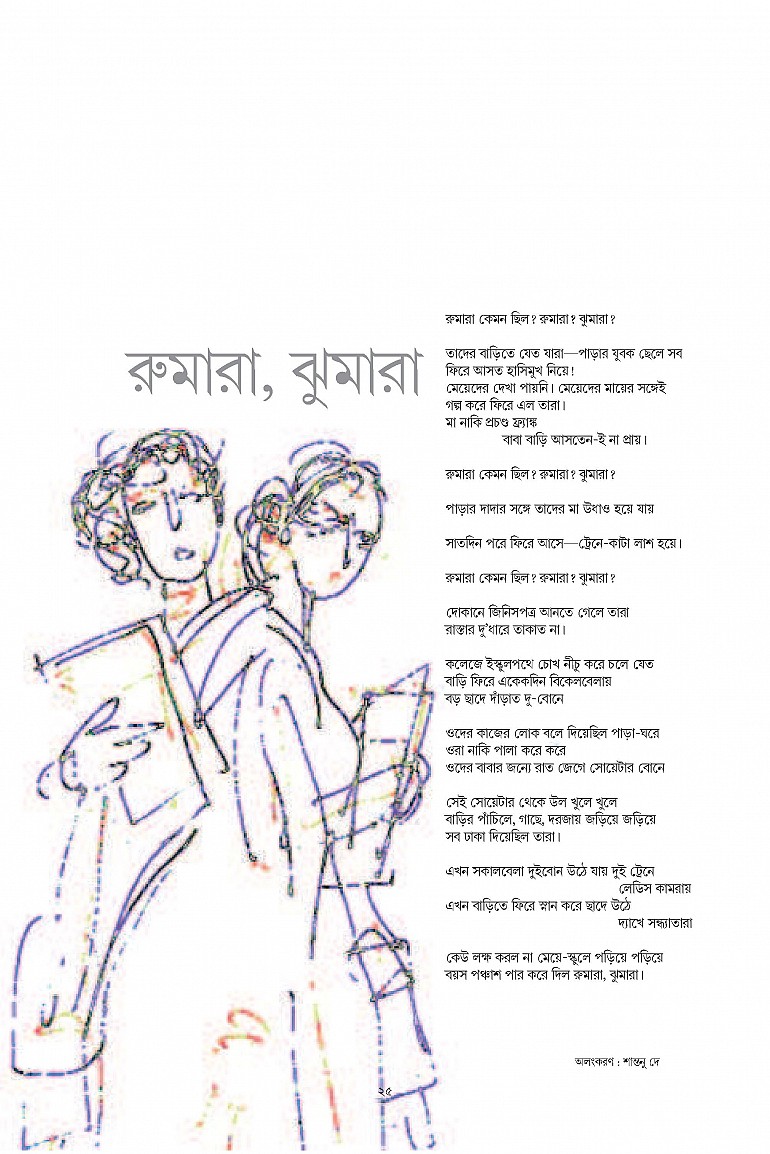 রুমারা, ঝুমারা
রুমারা কেমন ছিল? রুমারা? ঝুমারা?
তাদের বাড়িতে যেত যারা—পাড়ার যুবক ছেলে সব
ফিরে আসত হাসিমুখ নিয়ে!
মেয়েদের দেখা পায়নি। মেয়েদের মায়ের সঙ্গেই
গল্প করে ফিরে এল তারা।
মা নাকি প্রচণ্ড ফ্র্যাঙ্ক
বাবা বাড়ি আসতেন-ই না প্রায়।
রুমারা কেমন ছিল? রুমারা? ঝুমারা?
পাড়ার দাদার সঙ্গে তাদের মা উধাও হয়ে যায়
সাতদিন পরে ফিরে আসে—ট্রেনে-কাটা লাশ হয়ে।
রুমারা কেমন ছিল? রুমারা? ঝুমারা?
দোকানে জিনিসপত্র আনতে গেলে তারা
রাস্তার দু'ধারে তাকাত না।
কলেজে ইস্কুলপথে চোখ নীচু করে চলে যেত
বাড়ি ফিরে একেকদিন বিকেলবেলায়
বড় ছাদে দাঁড়াত দু-বোনে
ওদের কাজের লোক বলে দিয়েছিল পাড়া-ঘরে
ওরা নাকি পালা করে করে
ওদের বাবার জন্যে রাত জেগে সোয়েটার বোনে
সেই সোয়েটার থেকে উল খুলে খুলে
বাড়ির পাঁচিলে, গাছে, দরজায় জড়িয়ে জড়িয়ে
সব ঢাকা দিয়েছিল তারা।
এখন সকালবেলা দুইবোন উঠে যায় দুই ট্রেনে
লেডিস কামরায়
এখন বাড়িতে ফিরে স্নান করে ছাদে উঠে
দ্যাখে সন্ধ্যাতারা
কেউ লক্ষ করল না মেয়ে-স্কুলে পড়িয়ে পড়িয়ে
বয়স পঞ্চাশ পার করে দিল রুমারা, ঝুমারা।
অলংকরণ : শান্তনু দে
২৫